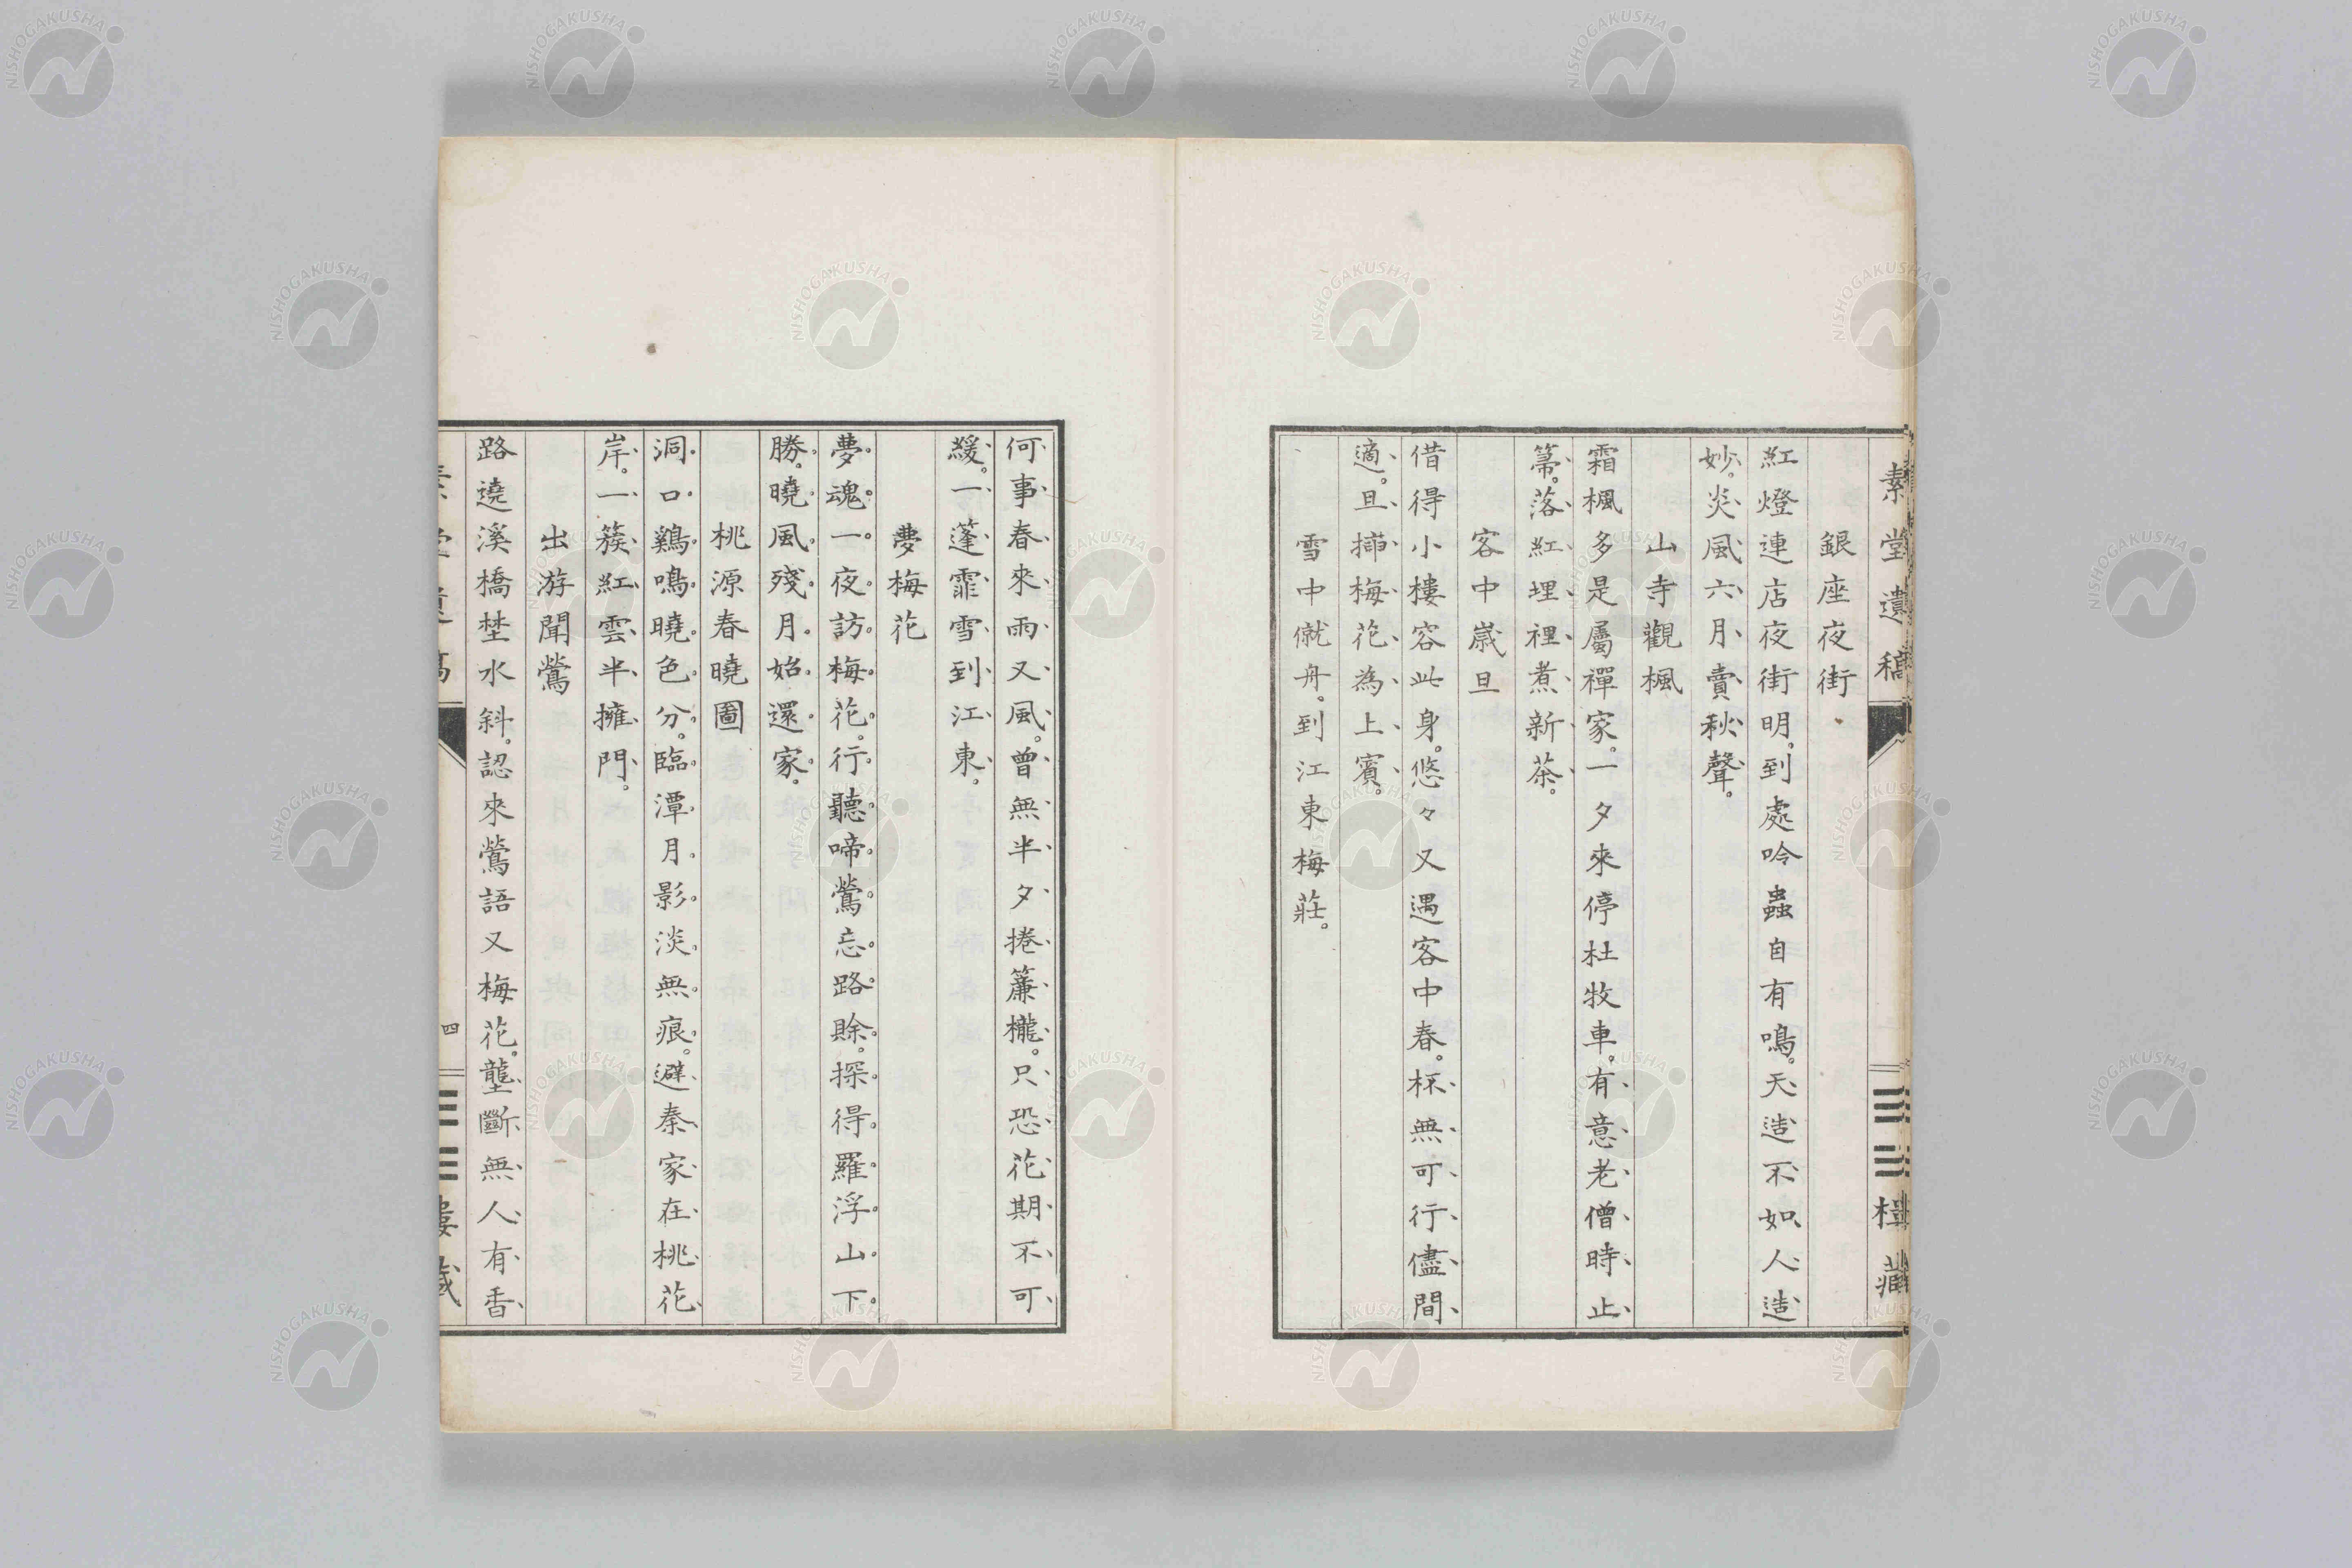 素堂遺稿
樓藏
銀座夜街
紅燈連店夜街明。到處吟蟲自有鳴。天造不如人造
妙。炎風六月賣秋聲。
山寺觀楓
霜楓多是屬禪家。一夕來停杜牧車。有意老僧時止
箒。落紅埋裡煮新茶。
客中歲旦
借得小樓容此身。悠々又遇客中春。杯無可行儘閒
適。旦揷梅花為上賓。
雪中僦舟。到江東梅莊。
何事春來雨又風。曾無半夕捲簾櫳。只恐花期不可
緩。一蓬霏雪到江東。
夢梅花
夢魂一夜訪梅花。行聽啼鶯忘路賒。探得羅浮山下
勝。曉風殘月始還家。
桃源春曉圖
洞口鷄鳴曉色分。臨潭月影淡無痕。避秦家在桃花
岸。一簇紅雲半擁門。
出游聞鶯
路遶溪橋埜水斜。認來鶯語又梅花。壟斷無人有香
素堂遺稿
四
樓藏
NISHOGAKUSHA